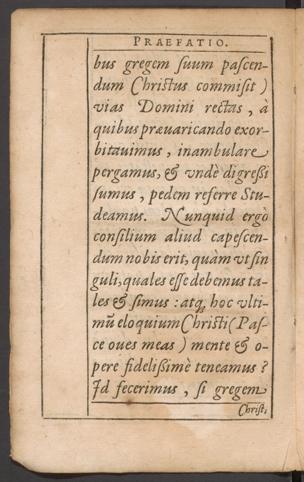 PRAEFATIO.
bus gregem ſuum paſcen-
dum Chriſtus commiſit)
vias Domini rectas, à
quibus præuaricando exor-
bitauimus, inambulare
pergamus, & vndè digreßi
ſumus, pedem referre Stu-
deamus. Nunquid ergò
conſilium aliud capeſcen-
dum nobis erit, quàm vt ſin
guli, quales eſſe debemus ta-
les & ſimus: atq; hoc vlti-
mũ eloquium Chriſti (Paſ-
ce oues meas) mente & o-
pere fideliſſimè teneamus?
Id fecerimus, ſi gregem
Chriſti